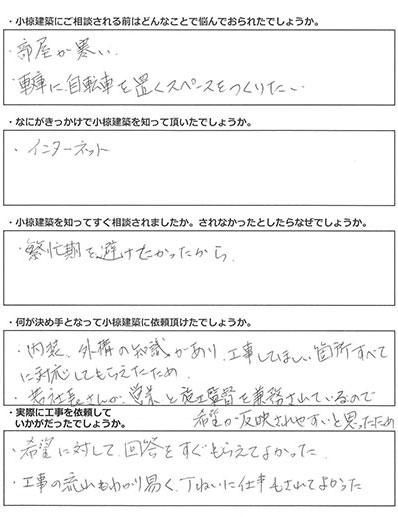 ・小椋建築にご相談される前はどんなことで悩んでおられたでしょうか。
・部屋が寒い.
・車庫に自転車を置くスペースをつくりたい
・なにがきっかけで小椋建築を知って頂いたでしょうか。
・インターネット
・小椋建築を知ってすぐ相談されましたか。されなかったとしたらなぜでしょうか。
・繁忙期を避けたかったから.
・何が決め手となって小椋建築に依頼頂けたでしょうか。
・内装、外構の知識があり、工事してほしい箇所すべて
に対応してもらえたため.
・若社長さんが、営業と施工監督を兼務されているので
希望が反映されやすいと思ったため
・実際に工事を依頼して
いかがだったでしょうか。
・希望に対して、回答をすぐもらえてよかった.
・工事の流れもわかり易く、丁ねいに仕事もされてよかった